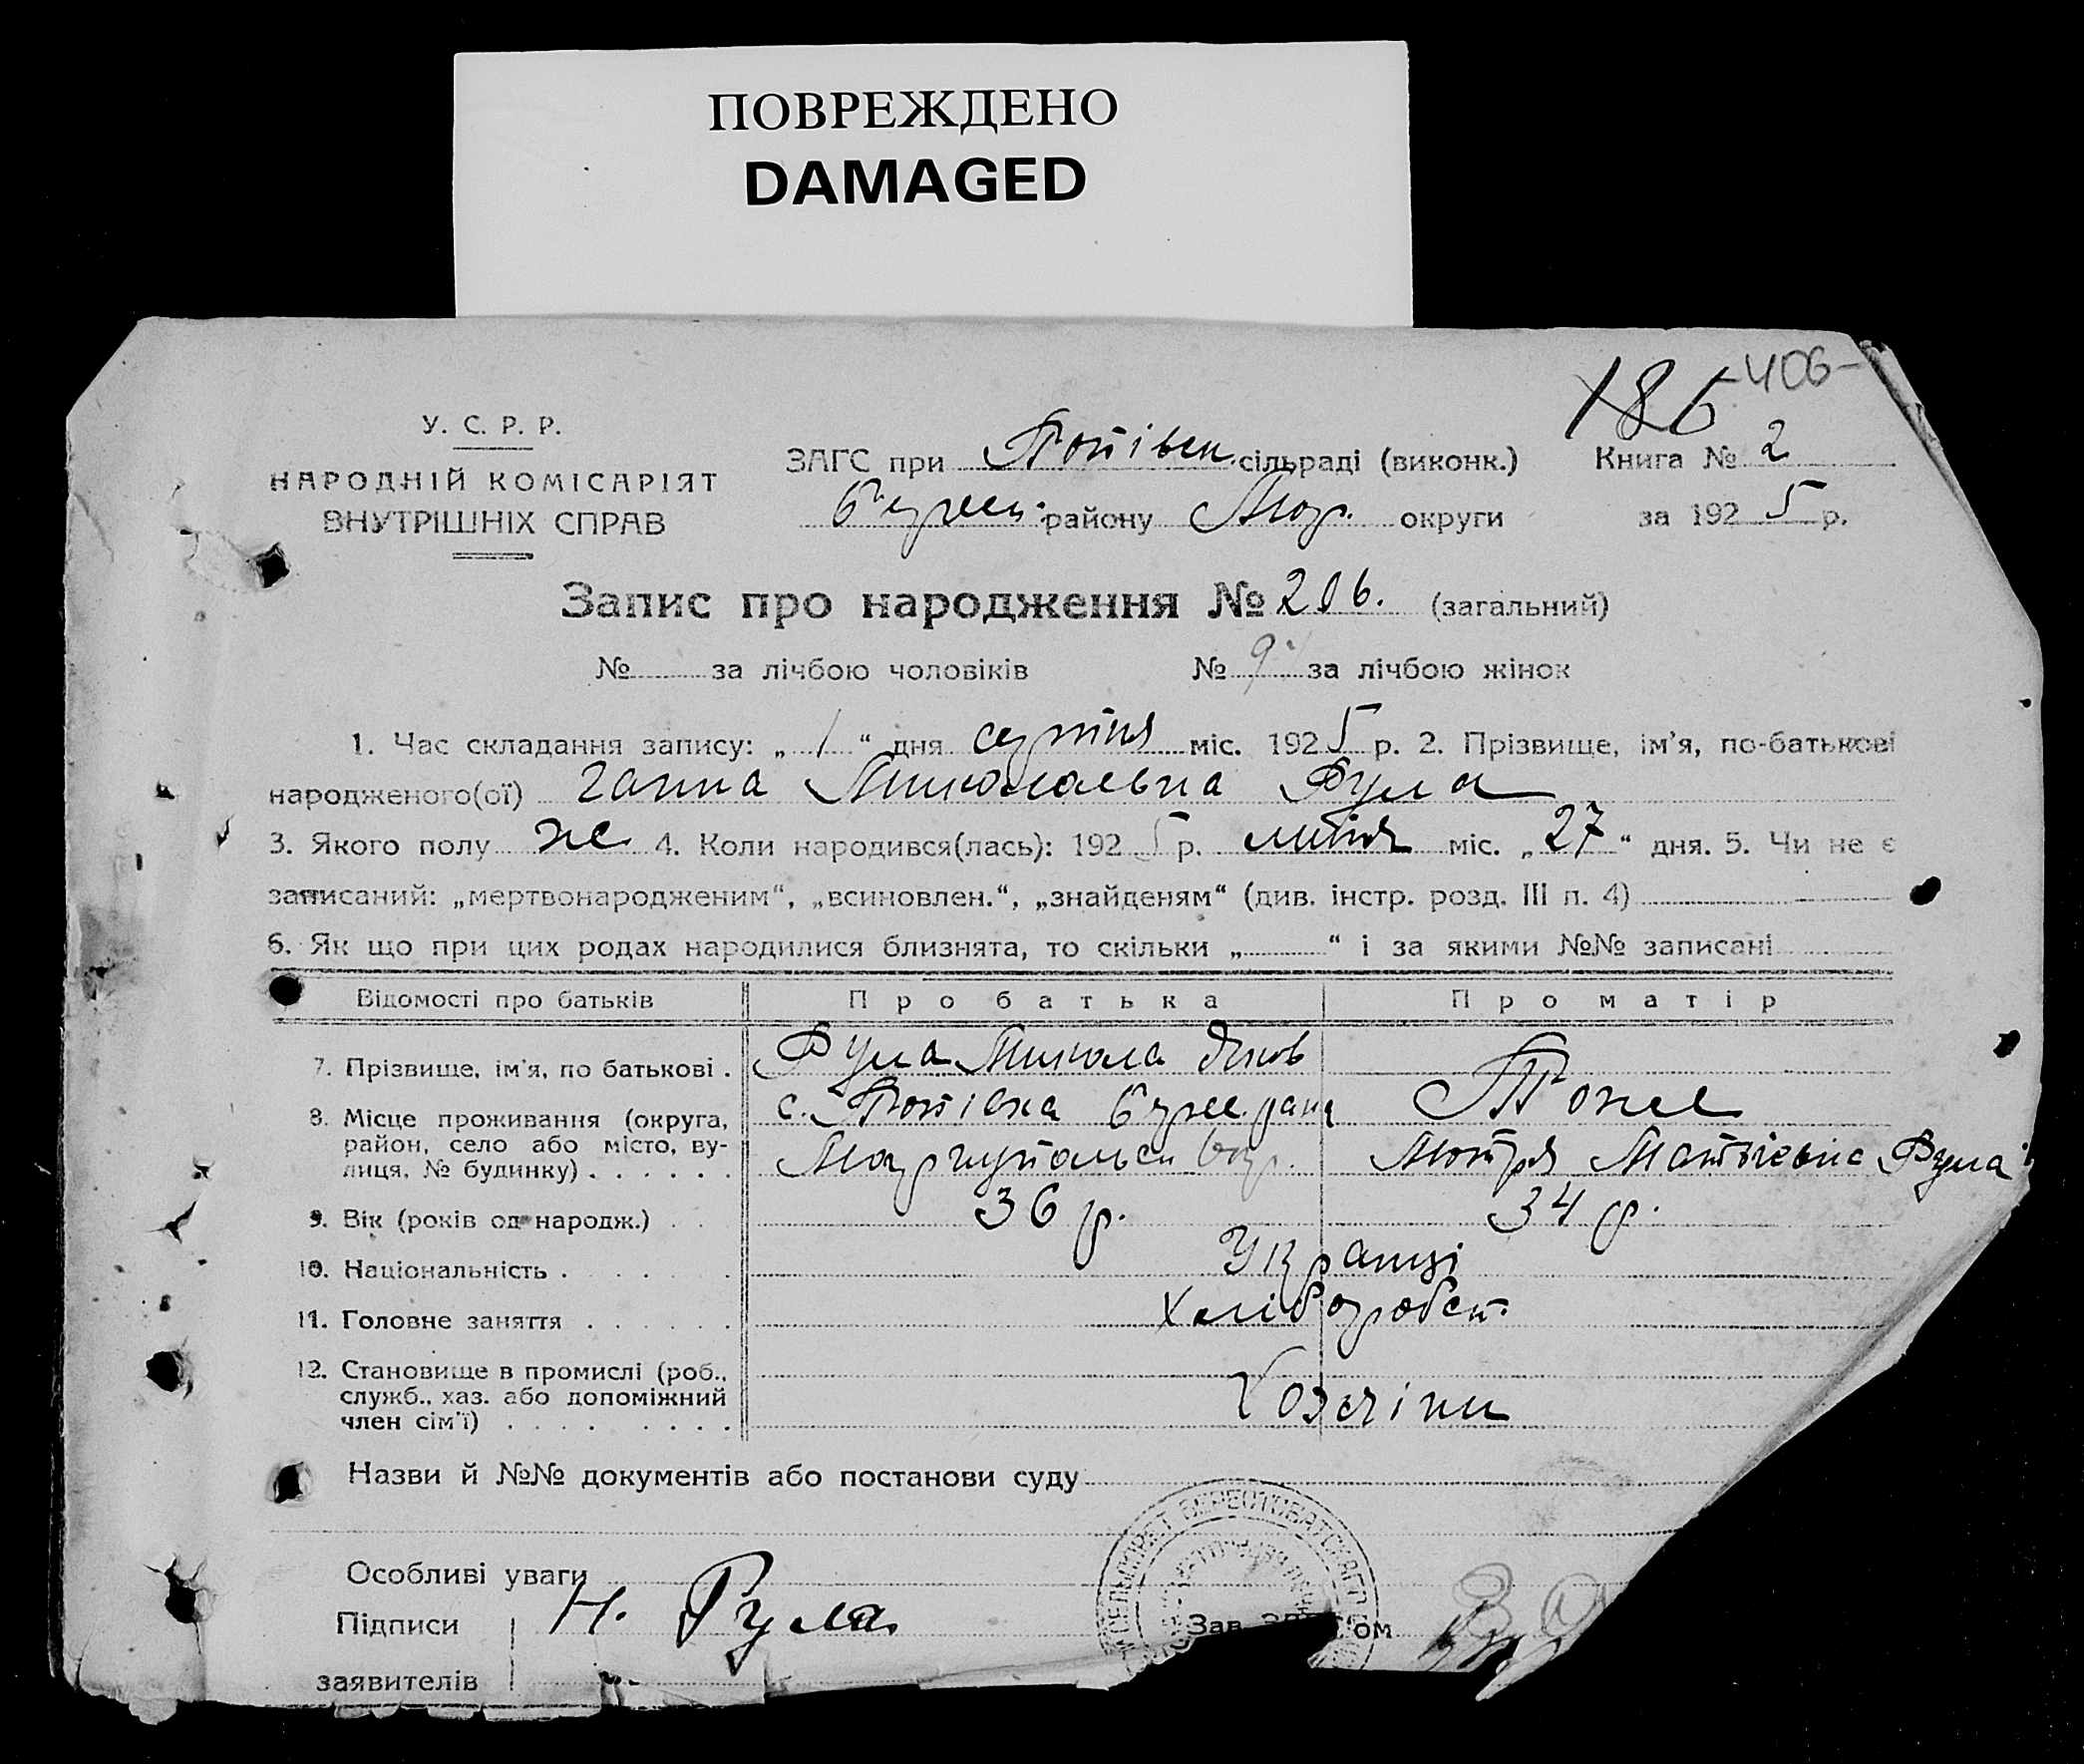 ПОВРЕЖДЕНО
DAMAGED
406-
186
У. С. Р. Р.
НАРОДНІЙ КОМІСАРІЯТ
ВНУТРІШНІХ СПРАВ
ЗАГС при сільраді (виконк.) Книга № 2
району Мар. округи за 1925 р.
Запис про народження № 206. (загальний)
№ за лічбою чоловіків № за лічбою жінок
1. Час складання запису: „1“ дня серпня міс. 1925 р. 2. Прізвище, ім'я, по-батькові
народженого(ої) Ганна Миколаевна Рула
3. Якого полу же 4. Коли народився(лась): 1925 р. липня міс. „27“ дня. 5. Чи не є
записаний: „мертвонародженим“, „всиновлен.“, „знайденям“ (див. інстр. розд. III п. 4)
6. Як що при цих родах народилися близнята, то скільки „ “ і за якими №№ записані
Відомості про батьків Про батька Про матір
7. Прізвище, ім'я, по батькові . Рула Микола Яков
8. Місце проживання (округа, с.
район, село або місто, ву-
лиця, № будинку) . . . . . Мотря Матвіевна Рула
9. Вік (років од народж.) . . 36 р. 34 р.
10. Національність . . . . . Українці
11. Головне заняття . . . . . Хліборобст.
12. Становище в промислі (роб.,
служб., хаз. або допоміжний Хозяіни
член сім'ї) . . . . . . . .
Назви й №№ документів або постанови суду
Особливі уваги
Підписи Н. Рула
Зав. ом
заявителів